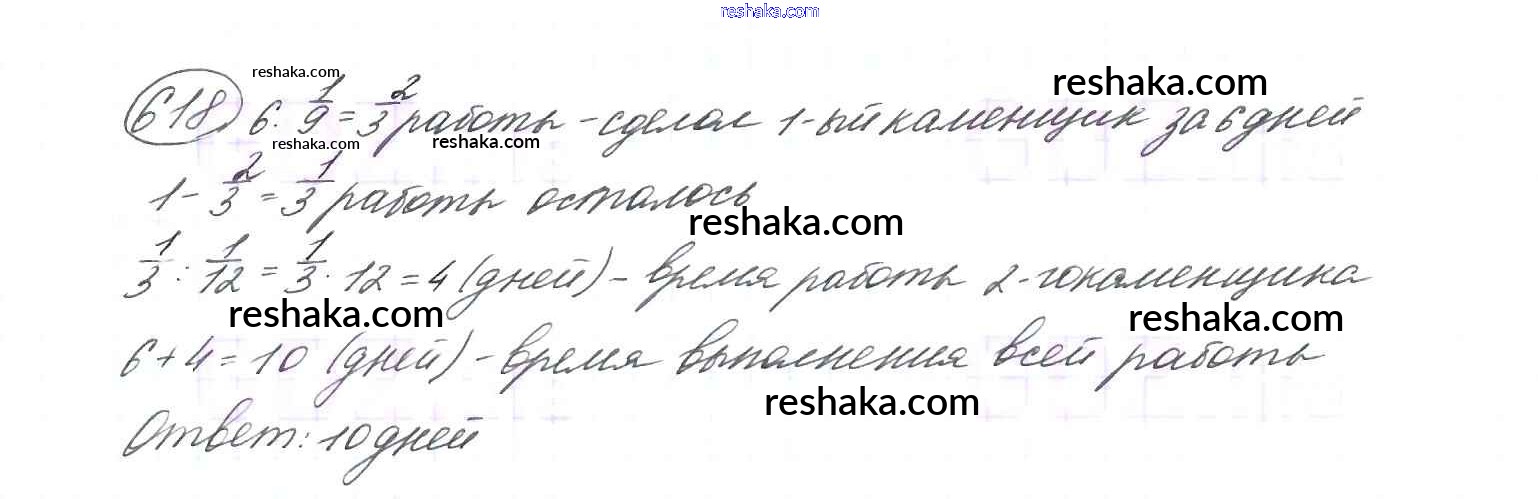 reshaka.com
reshaka.com
reshaka.com
618, 6 · 1/9 = 2/3 работы - сделал 1-ый каменщик за 6 дней
reshaka.com
reshaka.com
1 - 2/3 = 1/3 работы осталось
reshaka.com
1/3 : 1/12 = 1/3 · 12 = 4 (дней) - время работы 2-го каменщика
reshaka.com
reshaka.com
6 + 4 = 10 (дней) - время выполнения всей работы
reshaka.com
Ответ: 10 дней